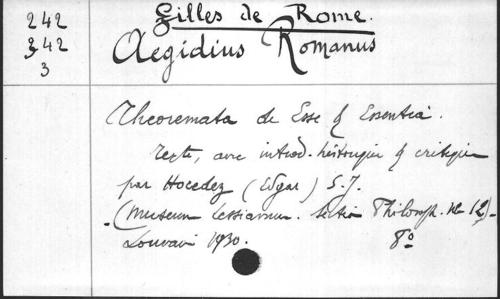 242
342
3
Gilles de Rome.
Aegidius Romanus
Theoremata de Esse & Essentia.
Texte, avec introd. historique & critique
par Hocedez (Edgar) S.J.
(Museum Lessianum. Section Philosoph. No 12)-
Louvain 1930. 8º